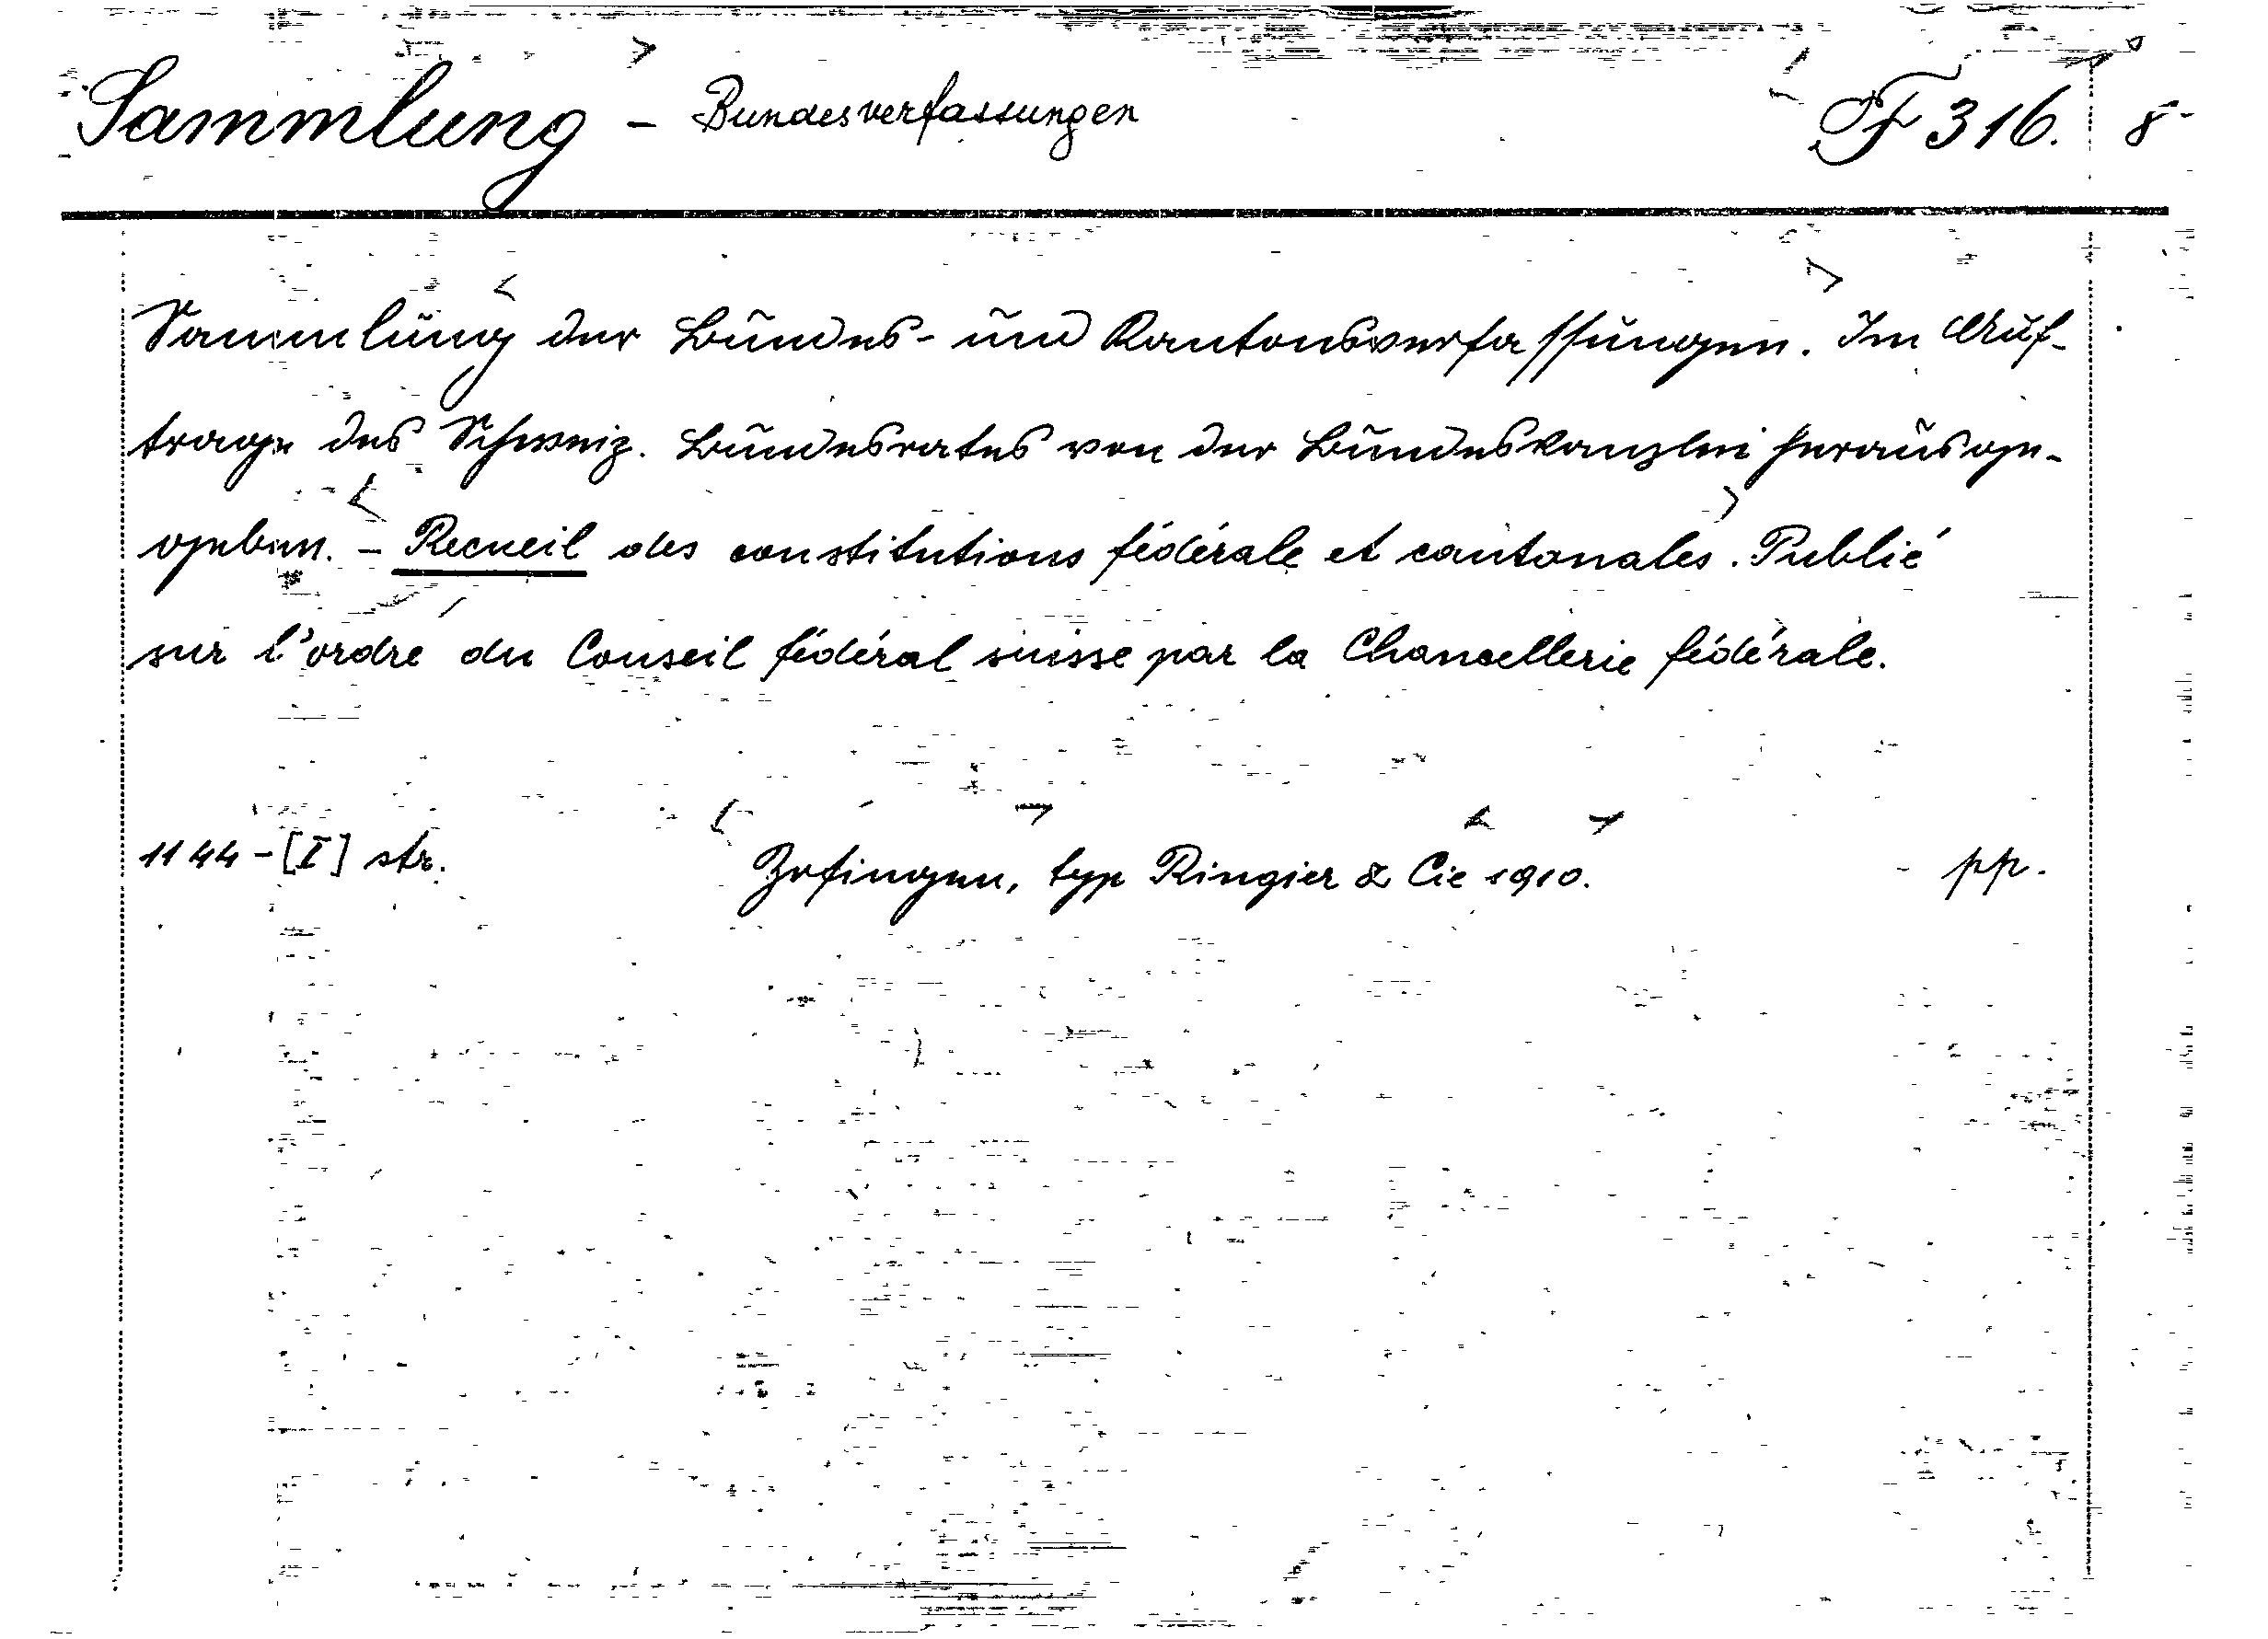 Sammlung - Bundesverfassungen F 316. 8°
Sammlung der Bundes- und Kantonsverfassungen. Im Auf-
trage des Schweiz. Bundesrates von der Bundeskanzlei herausge-
geben. - Recueil des constitutions fédérale et cantonales. Publié
sur l'ordre du Conseil fédéral suisse par la Chancellerie fédérale.
1144-[I] str. Zofingen, typ Ringier & Cie 1910. pp.